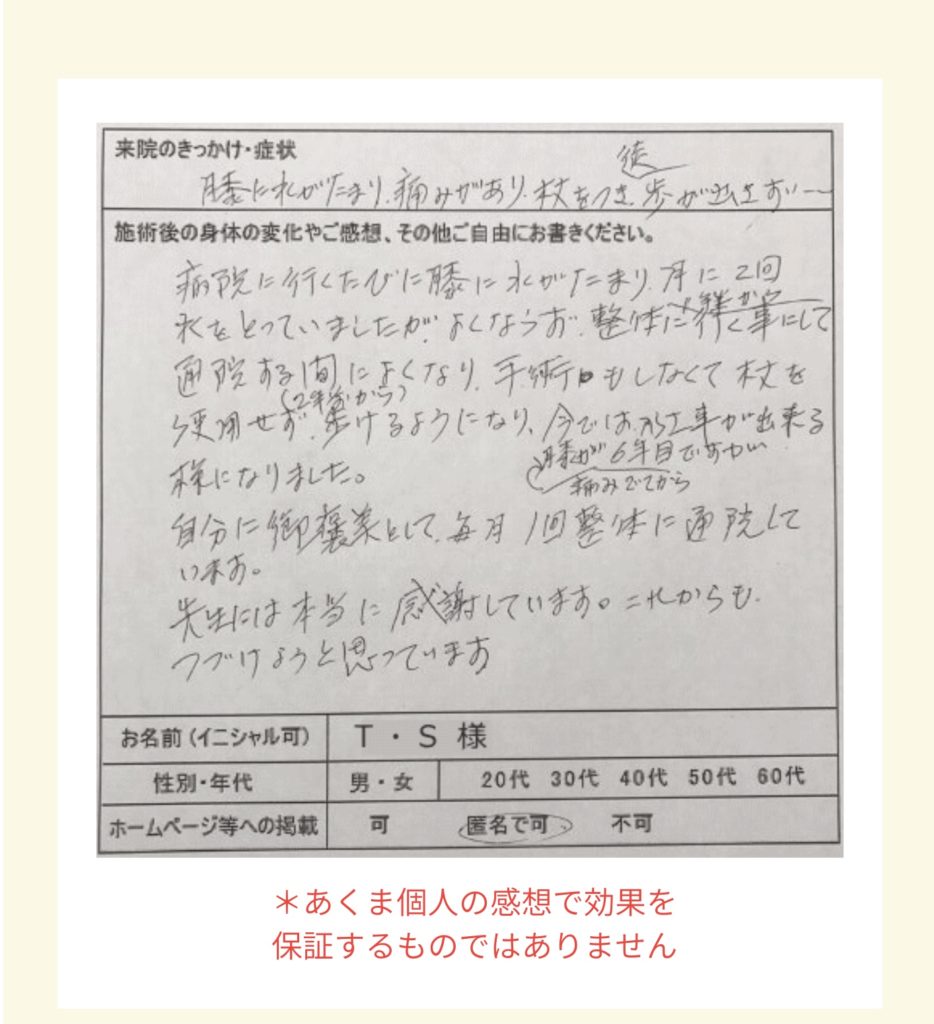 来院のきっかけ・症状
徒
膝に水がたまり、痛みがあり、杖をつき、歩が出きず
施術後の身体の変化やご感想、その他ご自由にお書きください。
病院に行くたびに膝に水がたまり、月に2回
水をとっていましたが、よくならず、整体に行く事にして
通院する間によくなり、手術もしなくて杖を
(2年前から)
使用せず、歩けるようになり、今では、仕事が出来る
膝が6年目ですがい
様になりました。
痛みでてから
自分に御褒美として、毎月1回整体に通院して
います。
先生には本当に感謝しています。これからも、
つづけようと思っています
お名前(イニシャル可) T・S 様
性別・年代 男・女 20代 30代 40代 50代 60代
ホームページ等への掲載 可 匿名で可 不可
＊あくま個人の感想で効果を
保証するものではありません